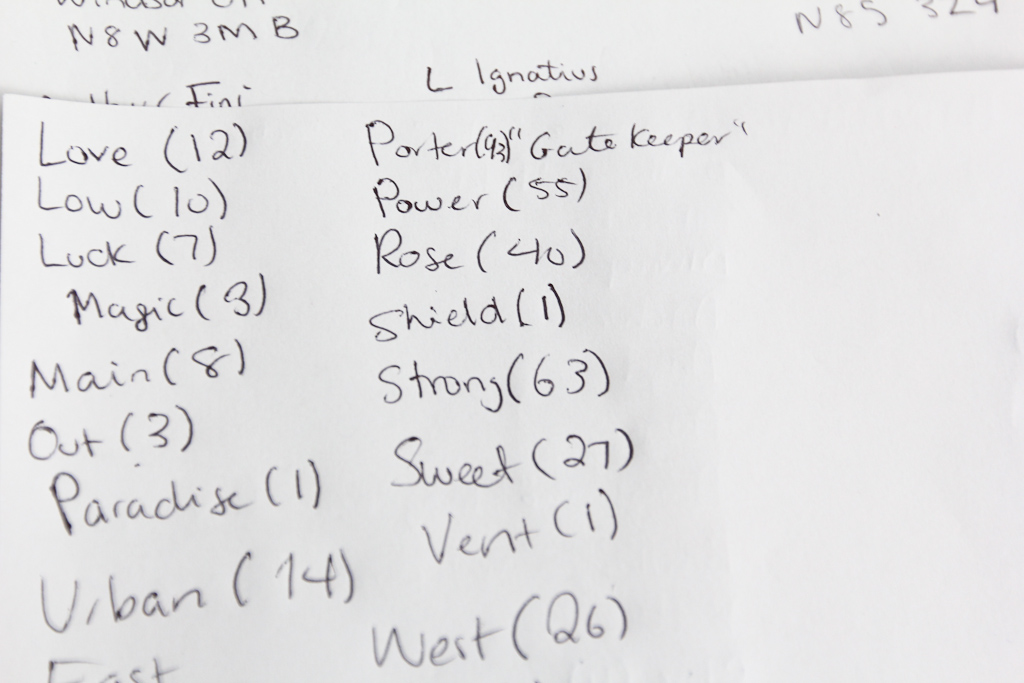 N8W 3MB
L Ignatius
Fini
Love (12)
Low (10)
Luck (7)
Magic (3)
Main (8)
Out (3)
Paradise (1)
Urban (14)
East
Porter (93) "Gate Keeper"
Power (55)
Rose (40)
Shield (1)
Strong (63)
Sweet (27)
Vent (1)
West (26)